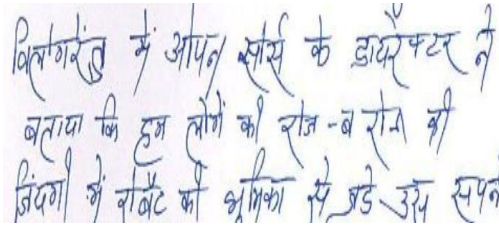 विलोगरेंज में ओपन सोर्स के डायरैक्टर ने
बताया कि हम लोगों की रोज-ब रोज की
जिंदगी में रोबोट की भूमिका से जुडे उस सपने